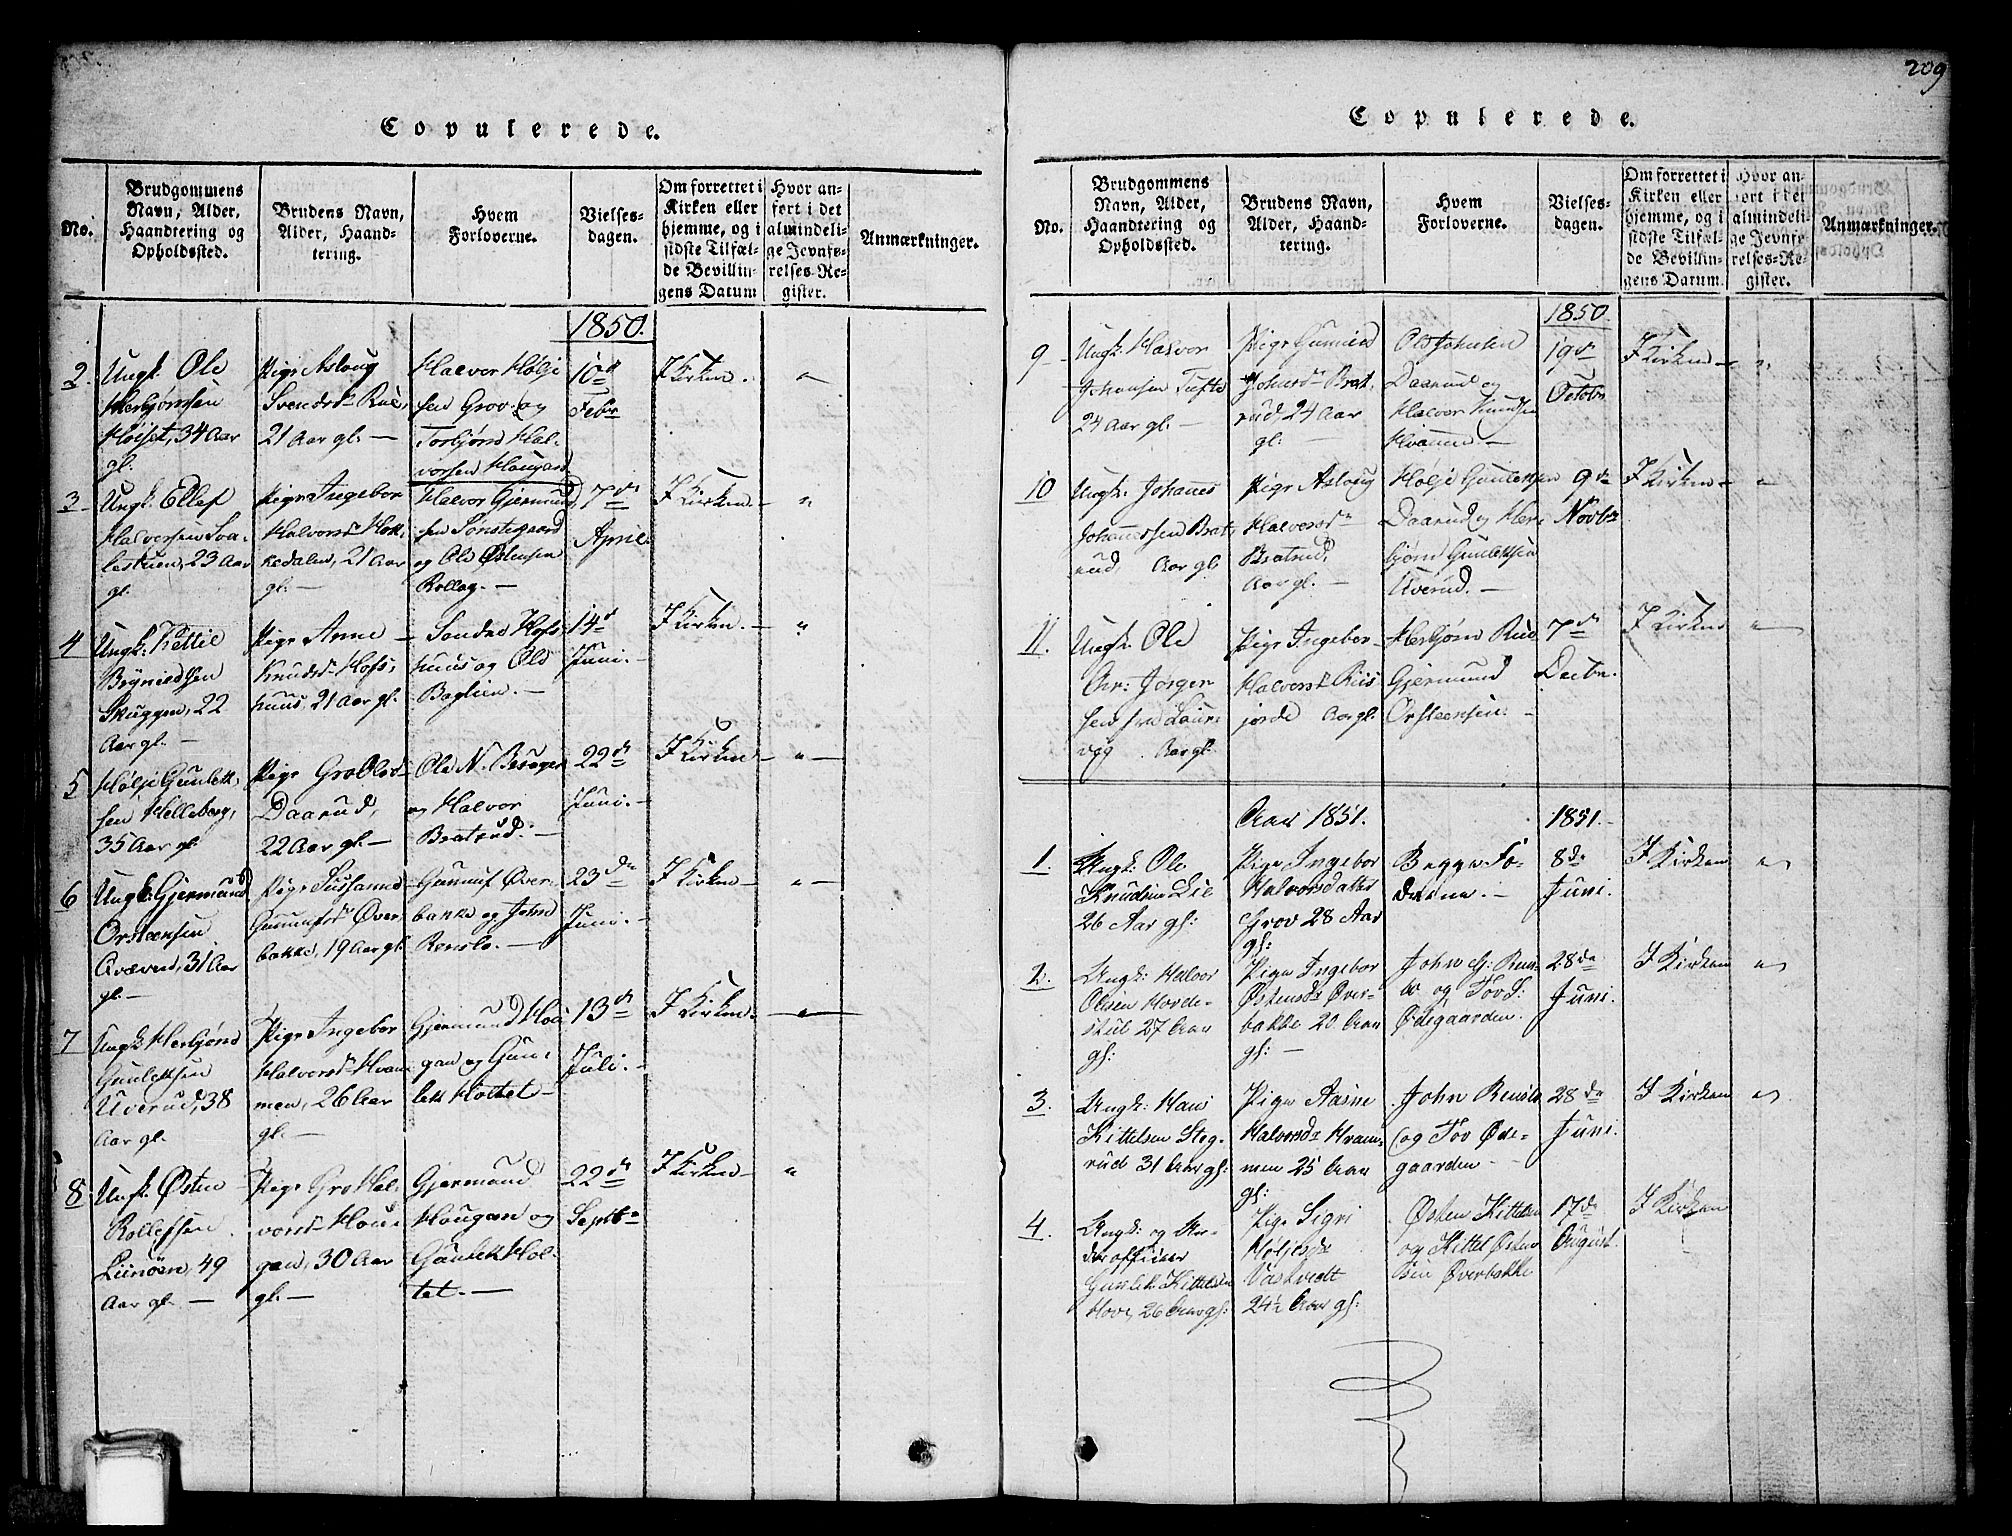 209
Copulerede.
No.
Brudgommens
Navn, Alder,
Haandtering og
Opholdssted.
Brudens Navn,
Alder, Haand-
tering.
Hvem
Forloverne.
Vielses-
dagen.
Om forrettet i
Kirken eller
hjemme, og i
sidste Tilfæl-
de Bevillin-
gens Datum
Hvor an-
fort i det
almindeli-
ge Jevnfø-
relses-Re-
gister.
Anmærkninger.
1850.
2.
Ungk: Ole
Herbjørnsen
Høiset, 34 Aar
gl.
Pige Asloug
Svendsd. Rue,
21 Aar gl. —
Halvor Hølje
sen Grov og
Torbjørn Hal-
vorsen Hougan
10d
Febr
I Kirken.
"
3
Ungk: Ellef
Halvorsen Sva-
lestuen, 23 Aar
gl.
Pige Ingebor
Halvorsd. Hok-
kedalen, 21 Aar
gl. —
Halvor Gjermund
sen Sønstegaard
og Ole Østensen
Rollag. —
7de
April.
I Kirken —
"
4
Ungk: Kettil
Brynieldsen
Skuggen, 22
Aar gl. —
Pige Anne
Knudsd. Hofs-
huus, 21 Aar gl.
Sondre Hofs-
huus og Ole
Boglien. —
14d
Juni. —
I Kirken. —
"
5
Hølje Gunlek-
sen Helleberg,
35 Aar gl.
Pige Gro Olsd.
Daarud,
22 Aar gl. —
Ole N.
og Halvor
Bratrud. —
22de
Juni. —
I Kirken —
" —
6
Ungk: Gjermund
Orsteensen
31 Aar
gl. —
Pige Sussanne
Gunnufsd. Øver-
bakke, 19 Aar gl.
Gunnuf Øver-
bakke og John
Renslo. —
23de
Juni. —
I Kirken —
" —
7
Ungk: Herbjørn
Gunleksen
Uverud, 38
Aar gl.
Pige Ingebor
Halvorsd. Hvam-
men, 26 Aar
gl. —
Gjermund Hou-
gan og Gun-
lek Holtet —
13de
Juli. —
I Kirken. —
"
8
Ungk: Østen
Rollefsen
49
Aar gl. —
Pige Gro Hal-
vorsd. Hou-
gan, 30 Aar
gl. —
Gjermund
Hougan og
Gunlek Hol-
tet. —
22de
Septbr
I Kirken —
"
Copulerede.
No.
Brudgommens
Navn, Alder,
Haandtering og
Opholdssted.
Brudens Navn,
Alder, Haand-
tering.
Hvem
Forloverne.
Vielses-
dagen.
Om forrettet i
Kirken eller
hjemme, og i
sidste Tilfæl-
de Bevillin-
gens Datum.
Hvor an-
ført i det
almindeli-
ge Jevnfø-
relses-Re-
gister.
Anmærkninger.
1850.
9
Ungk: Halvor
Johansen Tufte
24 Aar gl. —
Pige Gunild
Johnsd. Brat-
rud, 24 Aar
gl: —
Ole Johnsen
Daarud og
Halvor Knudsen
Hvamme —
19de
Octobr
I Kirken —
"
10
Ungk: Johannes
Johannessen Brat-
rud, Aar gl
Pige Asloug
Halvorsd.
Bratrud,
Aar gl. —
Hølje Gunleksen
Daarud og Her-
bjørn Gunleksen
Uverud. —
9de
Novbr
I Kirken —
"
11.
Ungk: Ole
Chr: Jørgen
sen fra Laur-
vig Aar gl.
Pige Ingebor
Halvorsd. Riis
jorde Aar gl.
Herbjørn Rue
Gjermund
Orsteensen. —
7de
Decbr.
I Kirken
"
Aar 1851.
1851. —
1.
Ungk: Ole
Knudsen Lie
26 Aar gl:
Pige Ingebor
Halvorsdatter
Grov 28 Aar
gl:
Begge Fæ-
drene. —
8de
Juni.
I Kirken
"
2.
Ungk: Halvor
Olsen Horde-
stul 27 Aar
gl:
Pige Ingebor
Østensdr Øver-
bakke 20 Aar
gl: —
John G: Rens-
lo og Tov S:
Ødegaarden.
28de
Juni.
I Kirken
"
3.
Ungk: Hans
Kittelsen Steg-
rud 31 Aar gl:
Pige Aasne
Halvorsdr Hvam-
men 25 Aar
gl:
John Renslo
og Tov Øde-
gaarden —
28de
Juni.
I Kirken
"
4.
Ungk: og Un-
derofficier
Gunlek Kittelsen
Hove, 26 Aar gl:
Pige Sigri
Høljesdr
Vaskvedt
24½ Aar gl:
Østen Kittelsen
og Kittel Østen
sen Øverbakke
17de
August.
I Kirken